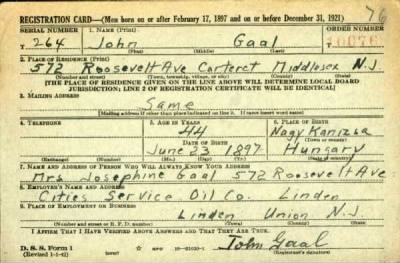 REGISTRATION CARD—(Men born on or after February 17, 1897 and on or before December 31, 1921) 76
SERIAL NUMBER 1. NAME (Print) ORDER NUMBER
T 264 John Gaal 10076
(First) (Middle) (Last)
2. PLACE OF RESIDENCE (Print)
572 Roosevelt Ave Carteret Middlesex N.J.
(Number and street) (Town, township, village, or city) (County) (State)
[THE PLACE OF RESIDENCE GIVEN ON THE LINE ABOVE WILL DETERMINE LOCAL BOARD
JURISDICTION; LINE 2 OF REGISTRATION CERTIFICATE WILL BE IDENTICAL]
3. MAILING ADDRESS
Same
[Mailing address if other than place indicated on line 2. If same insert word same]
4. TELEPHONE 5. AGE IN YEARS 6. PLACE OF BIRTH
44 Nagy Kanizsa
DATE OF BIRTH (Town or county)
June 23 1897 Hungary
(Exchange) (Number) (Mo.) (Day) (Yr.) (State or country)
7. NAME AND ADDRESS OF PERSON WHO WILL ALWAYS KNOW YOUR ADDRESS
Mrs Josephine Gaal 572 Roosevelt Ave
8. EMPLOYER'S NAME AND ADDRESS
Cities Service Oil Co. Linden
9. PLACE OF EMPLOYMENT OR BUSINESS
Linden Union N.J.
(Number and street or R. F. D. number) (Town) (County) (State)
I AFFIRM THAT I HAVE VERIFIED ABOVE ANSWERS AND THAT THEY ARE TRUE.
D. S. S. Form 1 John Gaal
(Revised 1-1-42) (over) GPO 16-21630-1 (Registrant's signature)